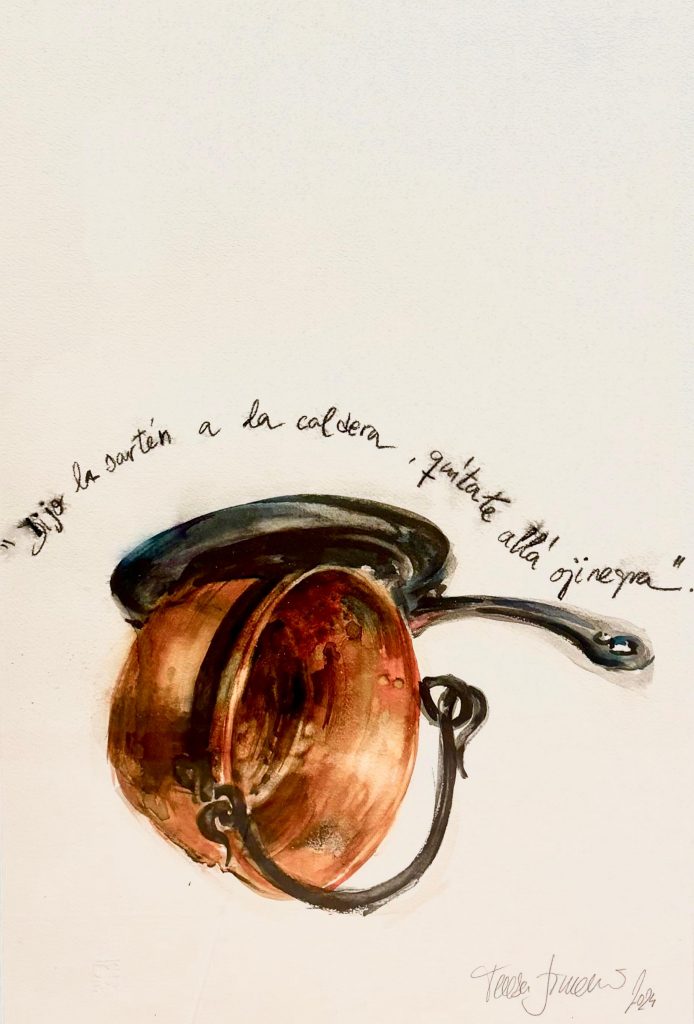 "Dijo la sartén a la caldera, quítate allá ojinegra".
Teresa
2024